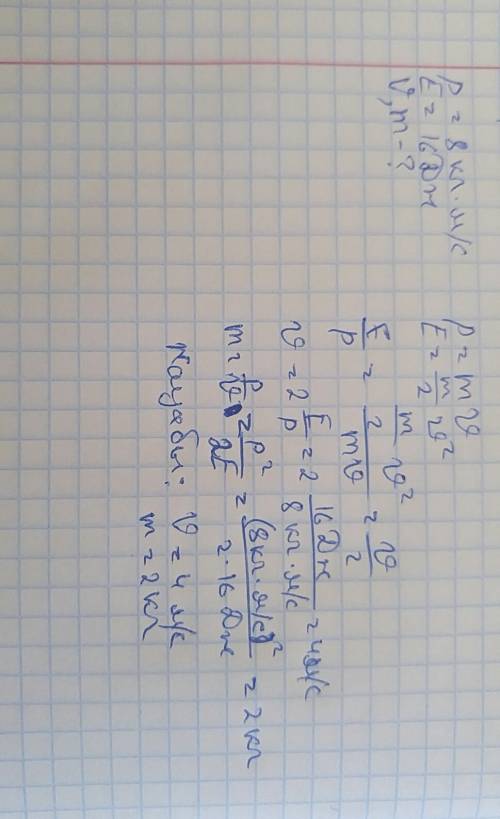 p = 8 кг·м/с
E = 16 Дж
v, m - ?
p = mv
E = m/2 v²
E/p = (m/2 v²)/(mv) = v/2
v = 2 E/p = 2 (16 Дж)/(8 кг·м/с) = 4 м/с
m = p/v = p²/2E = (8 кг·м/с)²/(2·16 Дж) = 2 кг
v = 4 м/с
m = 2 кг